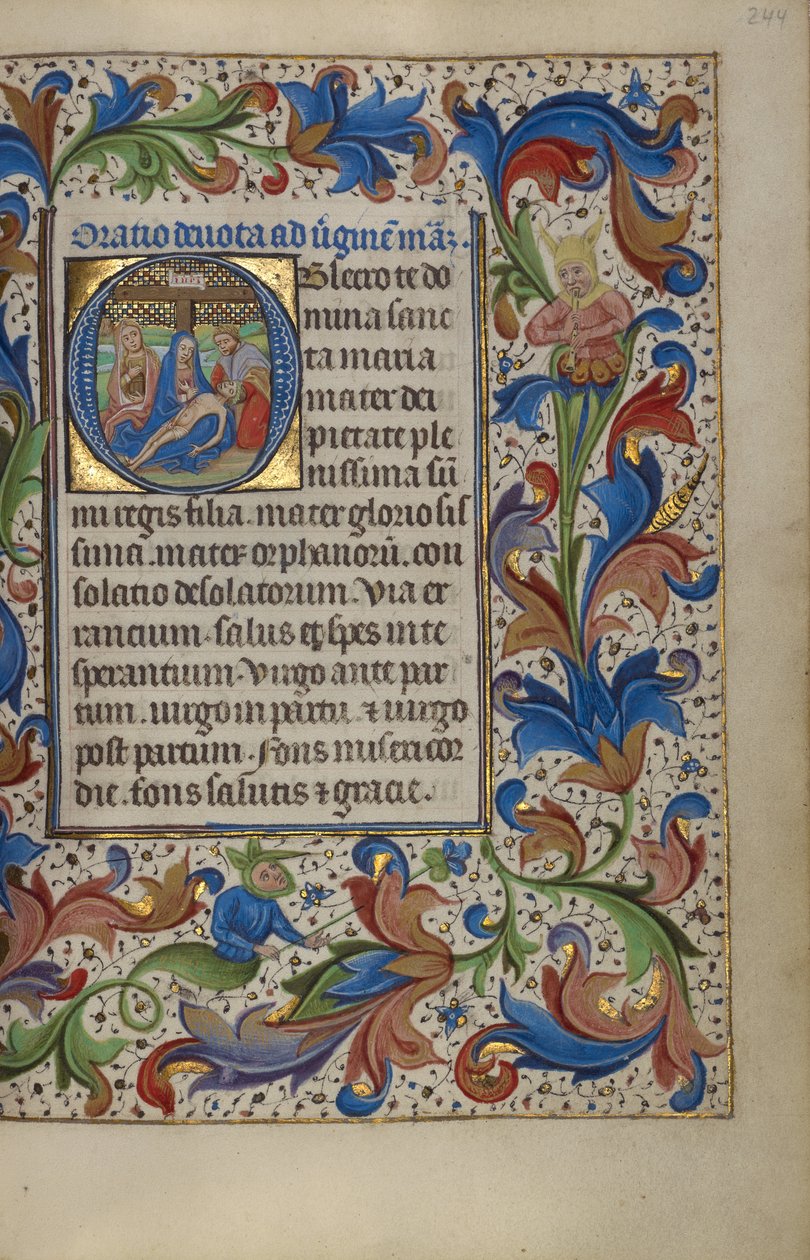 244
Oratio deuota ad v̄ginē māz.
INRI
OBsecro te do
mina sanc
ta maria
mater dei
pietate ple
nissima sū
mi regis filia. mater gloriosis
sima. mater orphanorū. con
solatio desolatorum. Via er
rancium. salus et spes in te
sperantium. virgo ante par
tum. uirgo in partu. ⁊ uirgo
post partum. fons misericor
die. fons salutis ⁊ gracie.